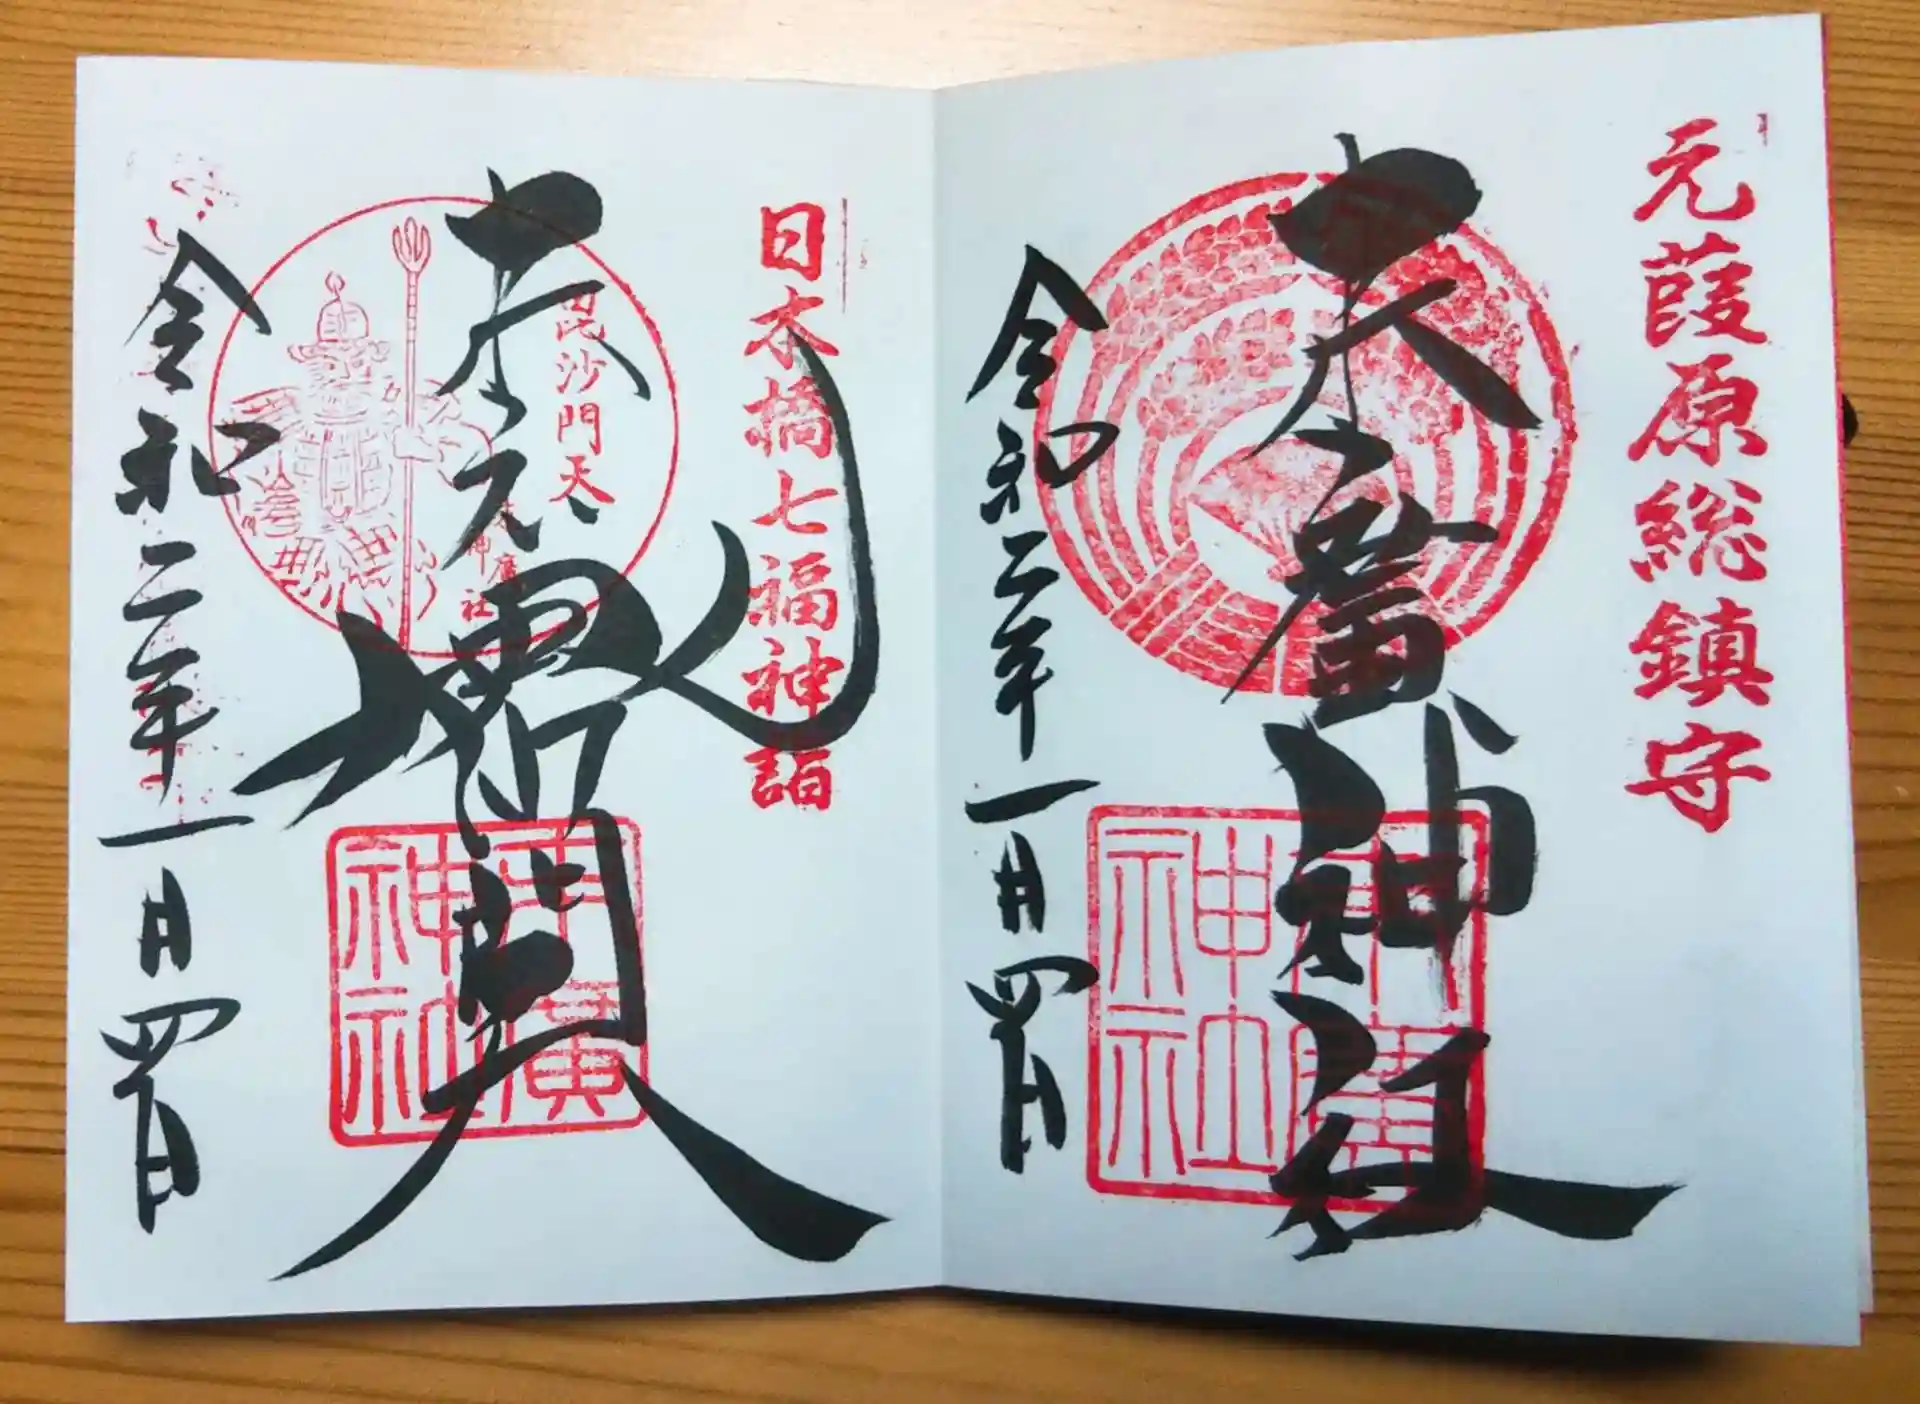 元葭原総鎮守
末廣神社
末廣神社
令和二年一月四日
日本橋七福神詣
毘沙門天
末廣神社
毘沙門天
末廣神社
令和二年一月四日